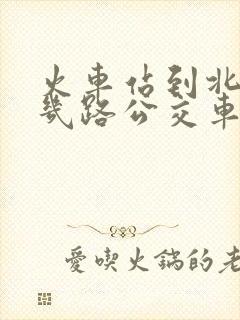 火車佔到北
幾路公交車
愛喫火鍋的老